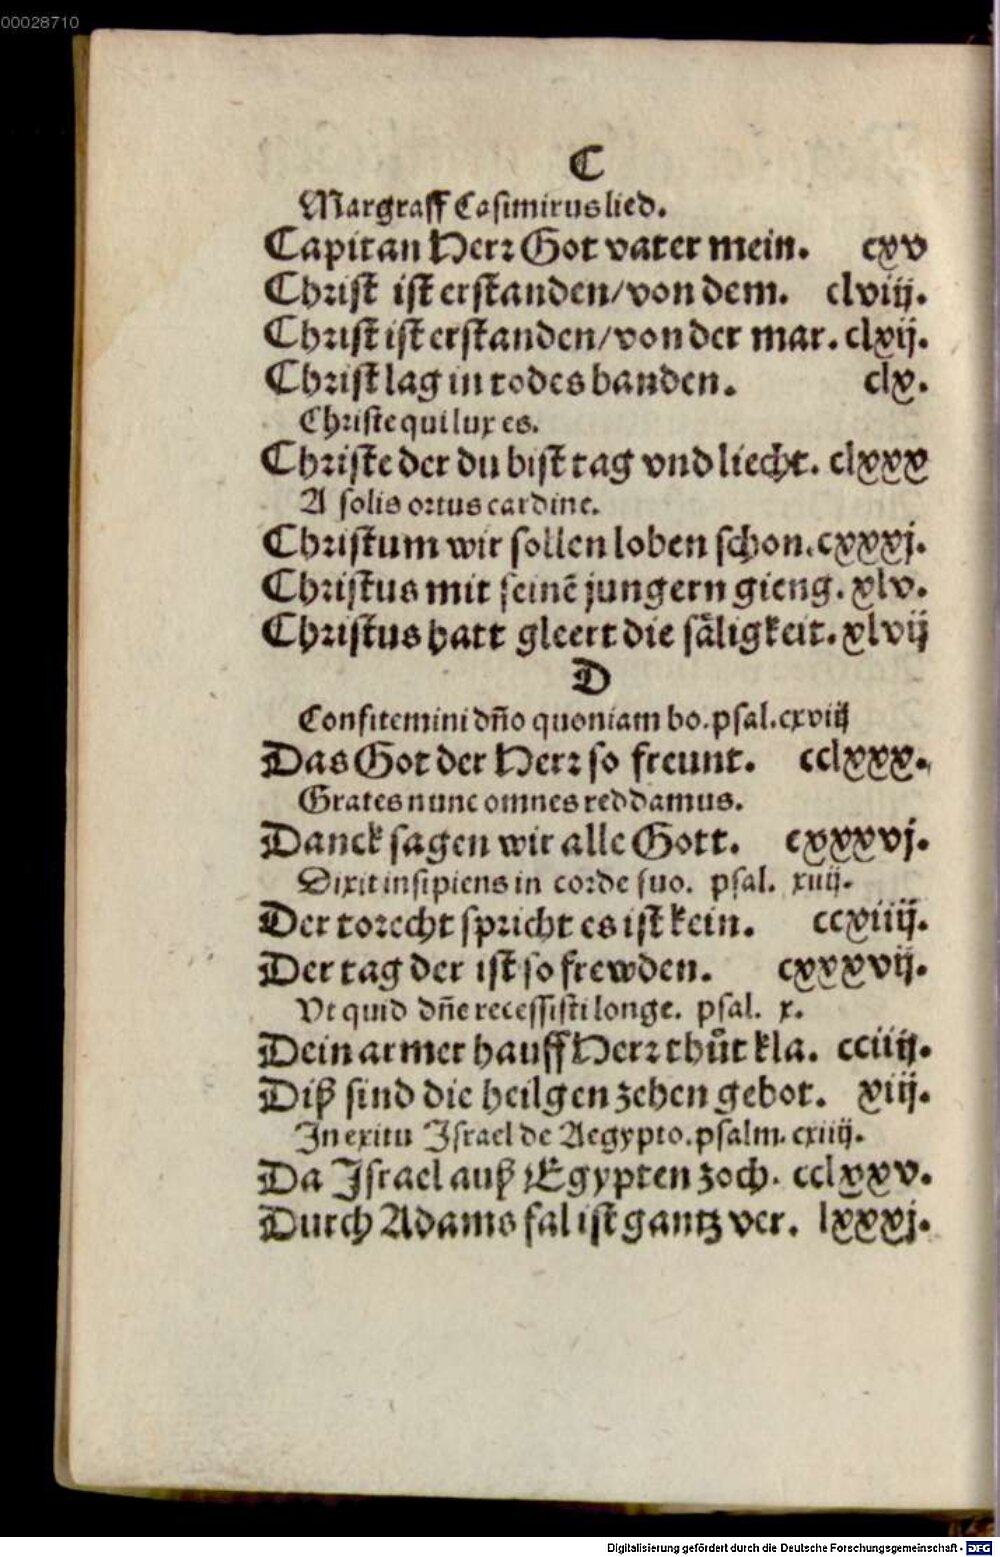 00028710
C
Margraff Casimirus lied.
Capitan Herr Got vater mein. cxv
Christ ist erstanden/von dem. clviij.
Christ ist erstanden/von der mar. clxij.
Christ lag in todes banden. clx.
Christe qui lux es.
Christe der du bist tag vnd liecht. clxxx
A solis ortus cardine.
Christum wir sollen loben schon. cxxxj.
Christus mit seinē jungern gieng. xlv.
Christus hatt gleert die sāligkeit. xlvij
D
Confitemini dño quoniam bo. psal. cxviij
Das Got der Herr so freunt. cclxxx.
Grates nunc omnes reddamus.
Danck sagen wir alle Gott. cxxxvj.
Dixit insipiens in corde suo. psal. xiiij.
Der torecht spricht es ist kein. ccxiiij.
Der tag der ist so frewden. cxxxvij.
Vt quid dñe recessisti longe. psal. x.
Dein armer hauff Herr thůt kla. cciiij.
Diß sind die heilgen zehen gebot. xiij.
In exitu Israel de Aegypto. psalm. cxiiij.
Da Israel auß Egypten zoch. cclxxv.
Durch Adams fal ist gantz ver. lxxxj.
Digitalisierung gefördert durch die Deutsche Forschungsgemeinschaft - DFG